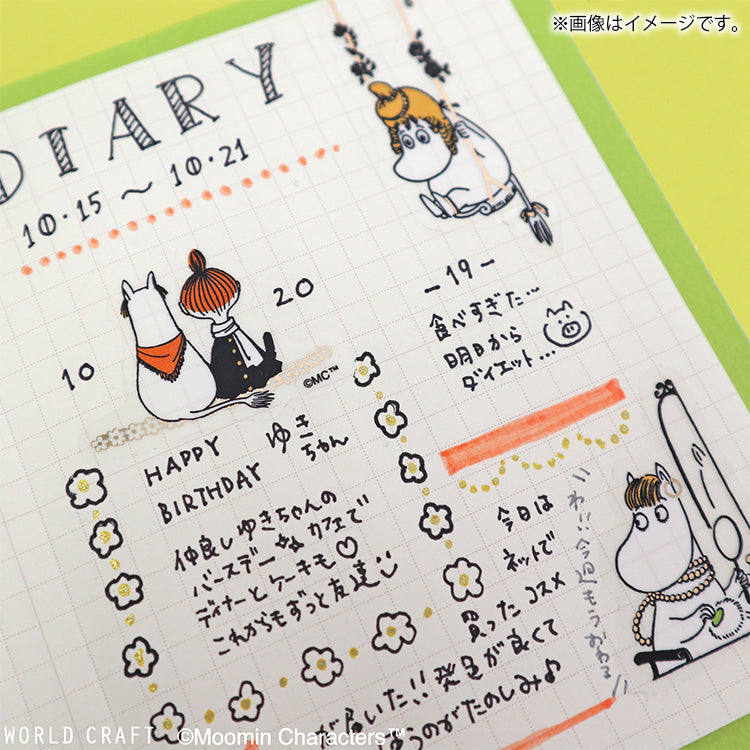 ※画像はイメージです。
DIARY
10・15 〜 10・21
10
20
©MC™
HAPPY
BIRTHDAY
ゆき
ちゃん
仲良しゆきちゃんの
バースデー
カフェで
ディナーとケーキも♡
これからもずっと友達
-19-
食べすぎた…
明日から
ダイエット…
今日は
ネットで
買ったコスメ
が届いた!! 発色が良くて
うのがたのしみ♪
わ!!今週もうおわる!!
WORLD CRAFT ©Moomin Characters™